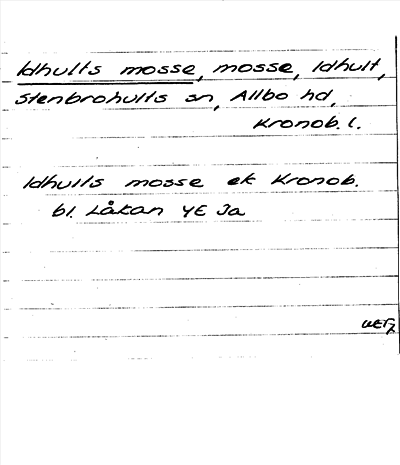 Idhults mosse, mosse, Idhult,
Stenbrohults sn, Allbo hd,
Kronob. l.
Idhults mosse ek Kronob.
bl. Låkan 4E Ja